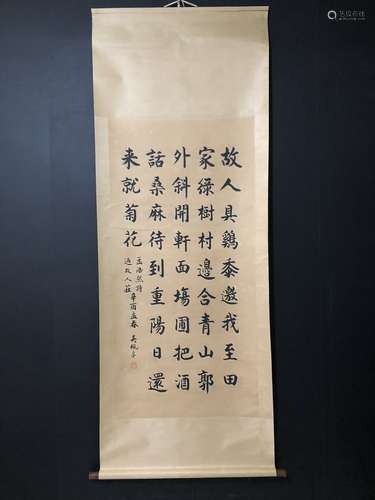 故人具鷄黍邀我至田
家緑樹村邊合青山郭
外斜開軒面塲圃把酒
話桑麻待到重陽日還
来就菊花
孟浩然詩
過故人莊
辛酉孟春 吳